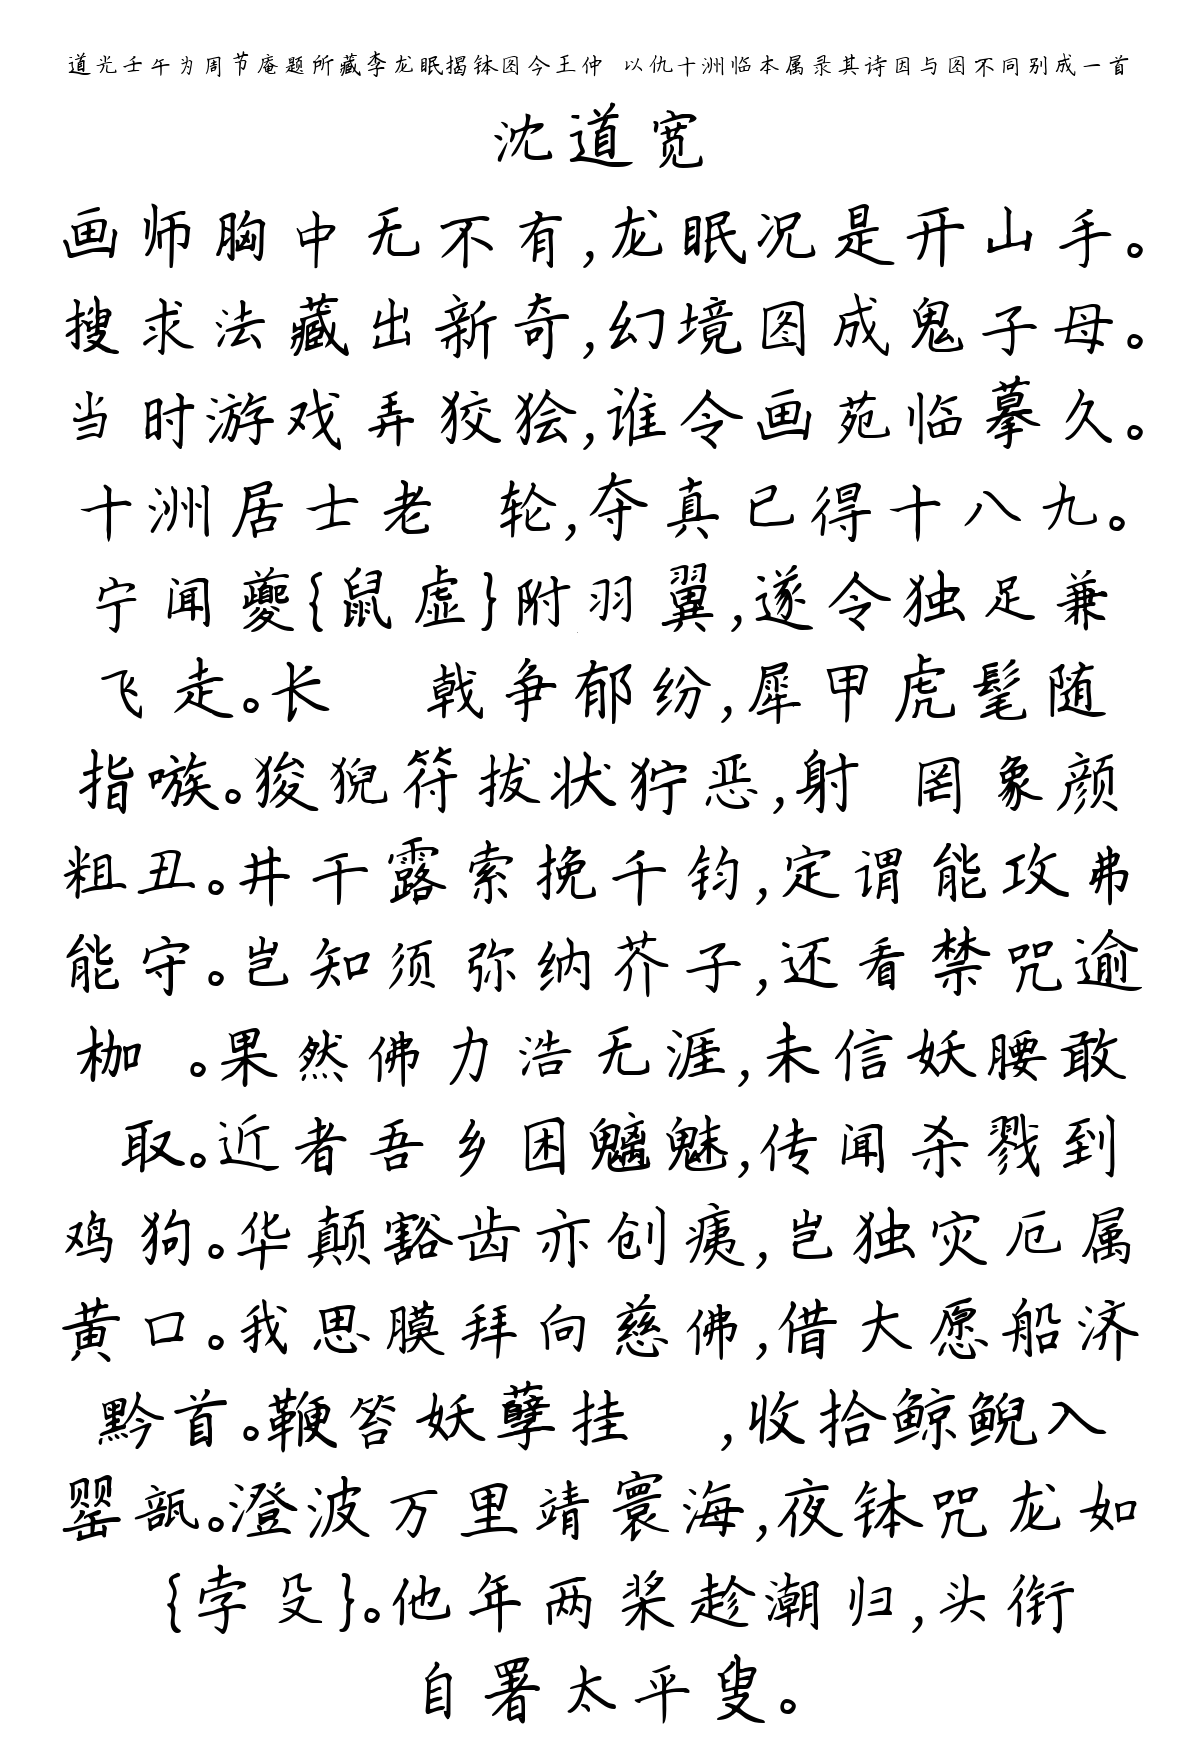 道光壬午为周节庵题所藏李龙眠揭钵图今王仲 以仇十洲临本属录其诗因与图不同别成一首
沈道宽
画师胸中无不有,龙眠况是开山手。
搜求法藏出新奇,幻境图成鬼子母。
当时游戏弄狡狯,谁令画苑临摹久。
十洲居士老 轮,夺真已得十八九。
宁闻夔{鼠虚}附羽翼,遂令独足兼
飞走。长 戟争郁纷,犀甲虎髦随
指嗾。狻猊符拔状狞恶,射 罔象颜
粗丑。井干露索挽千钧,定谓能攻弗
能守。岂知须弥纳芥子,还看禁咒逾
枷 。果然佛力浩无涯,未信妖腰敢
取。近者吾乡困魑魅,传闻杀戮到
鸡狗。华颠豁齿亦创痍,岂独灾厄属
黄口。我思膜拜向慈佛,借大愿船济
黔首。鞭笞妖孽挂 ,收拾鲸鲵入
罂瓿。澄波万里靖寰海,夜钵咒龙如
{孛殳}。他年两桨趁潮归,头衔
自署太平叟。